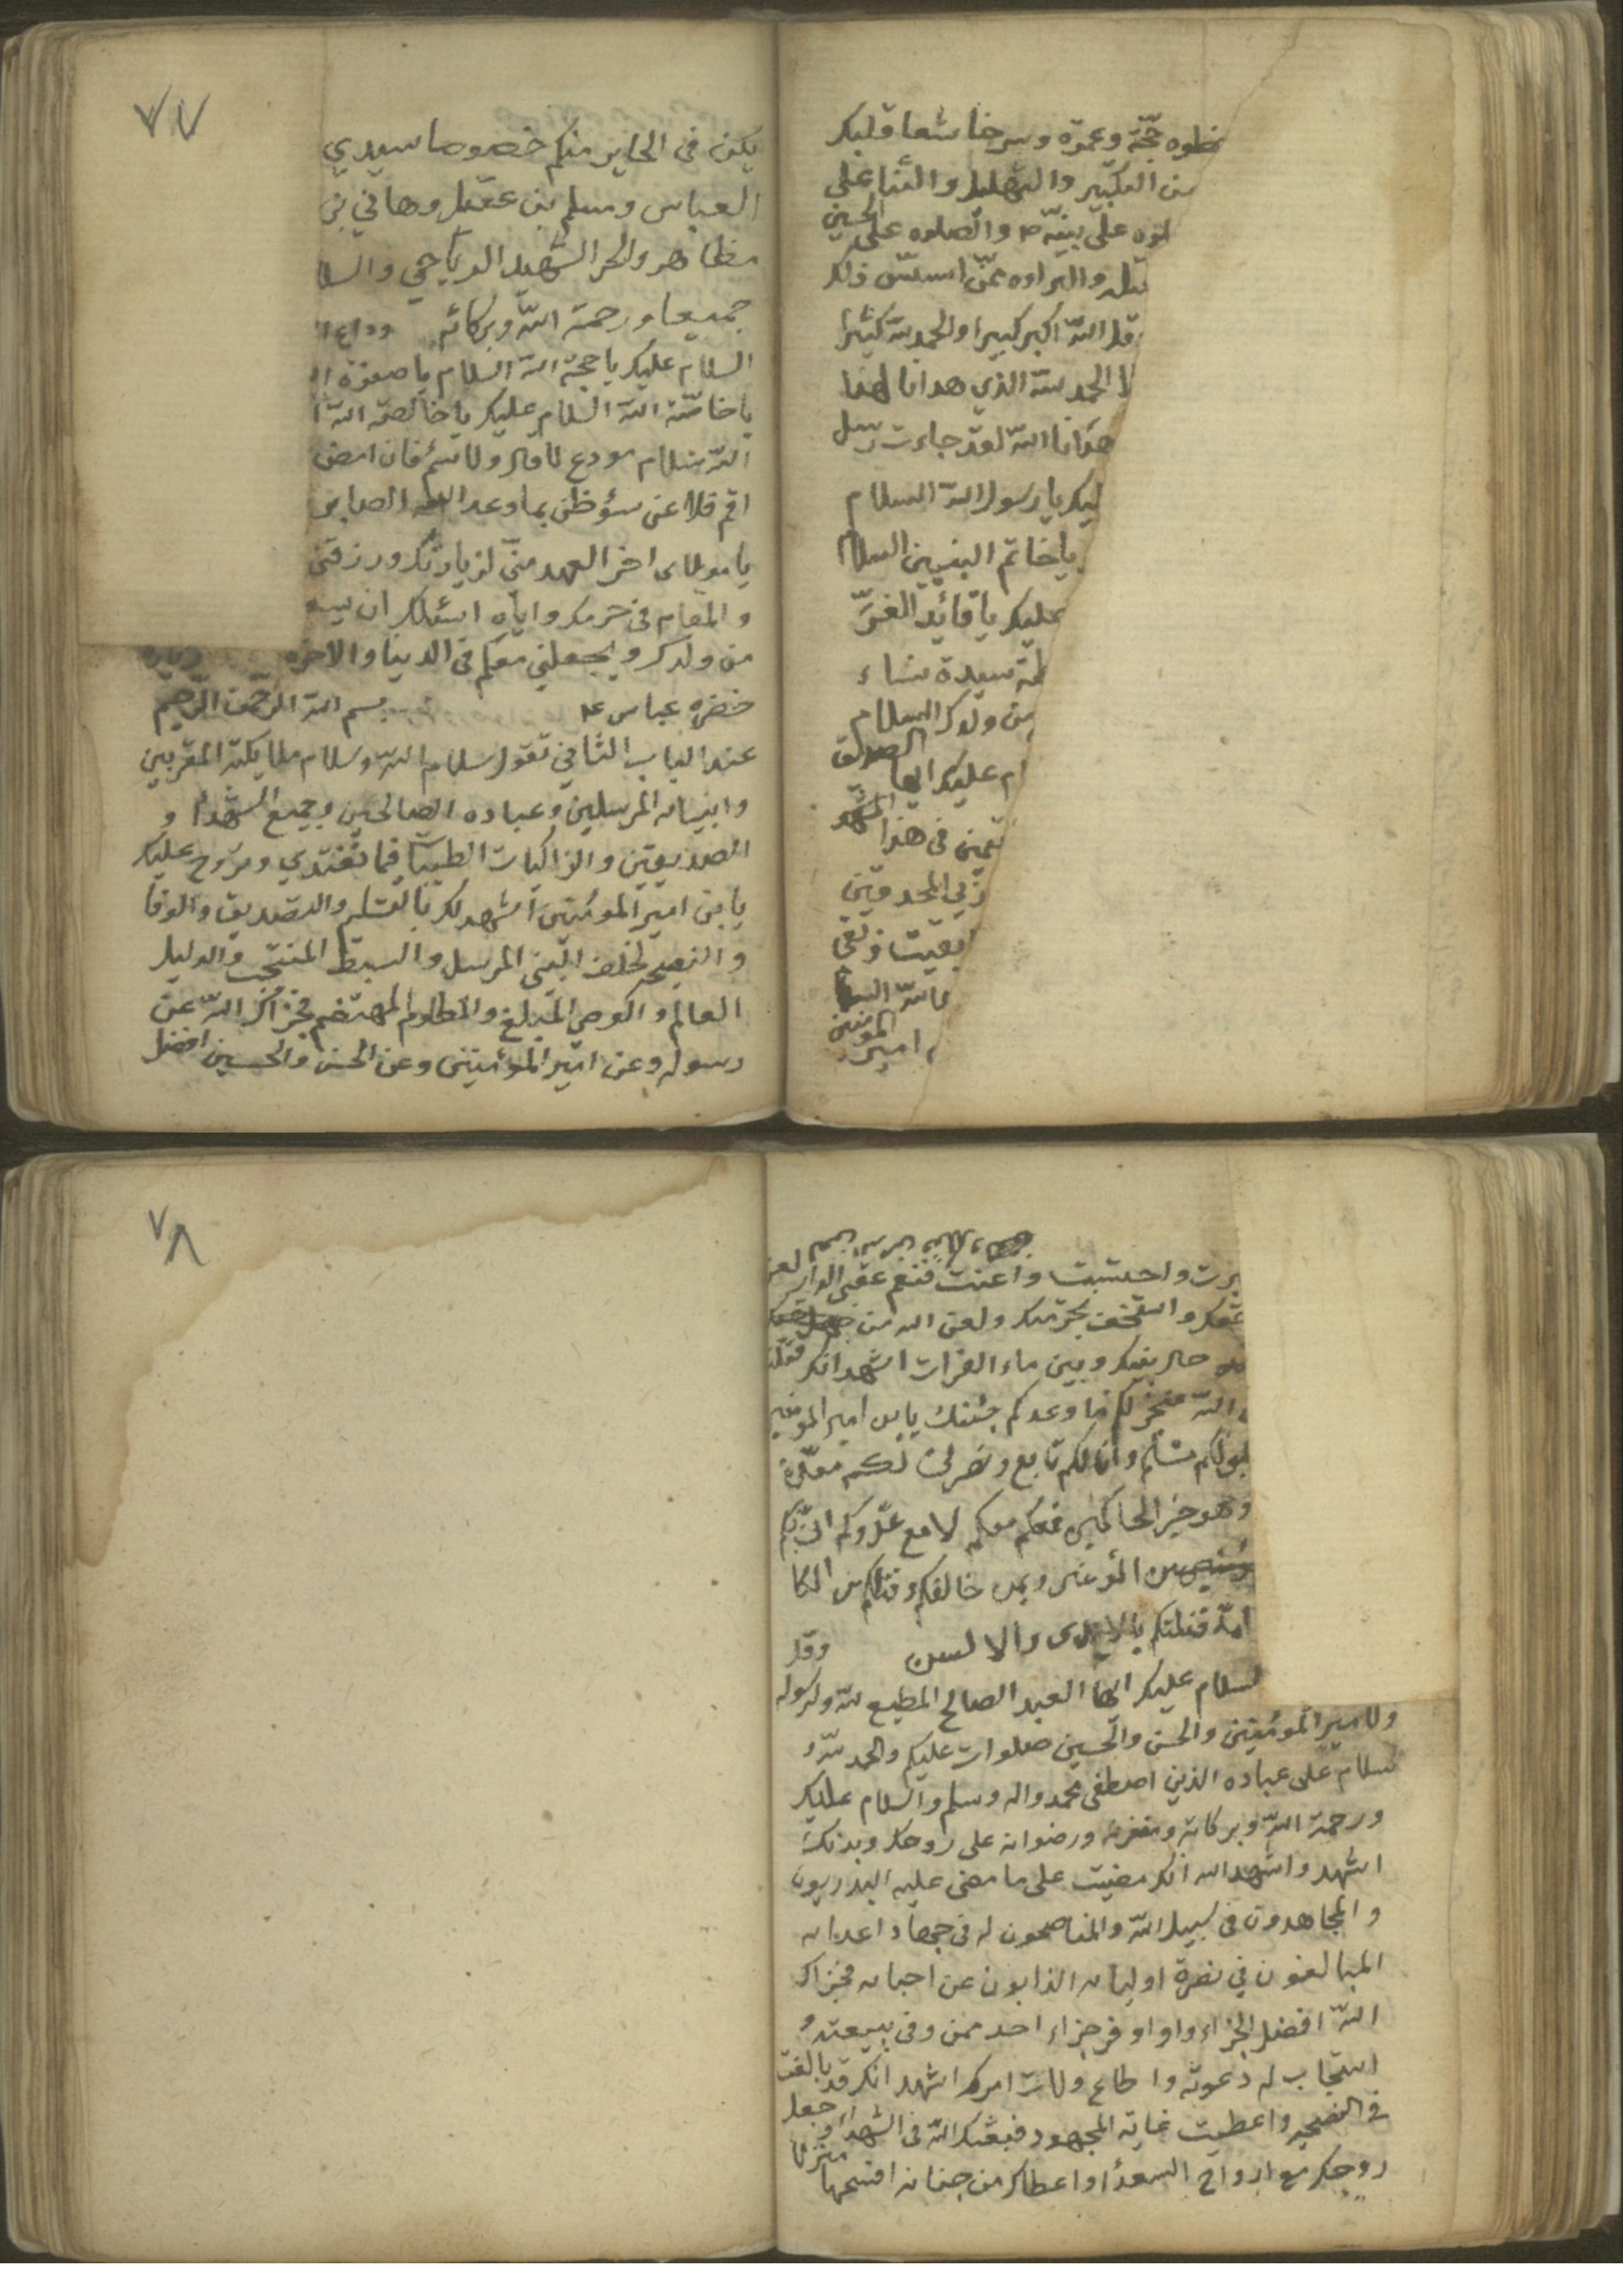 خطوه حجّة وعمرة وسر خاشعا قلبك
من التكبير والتهليل والثنا على
لوه على نبيّه ص والصلوه على الحسين
قتله والبراءه ممّن اسسّ ذلك
وقل الله اكبر كبيرا والحمد لله كثيرا
لا الحمد لله الذي هدانا لهذا
هدانا الله لقد جاءت رسل
ليك يا رسول الله السلام
يا خاتم النبيين السلام
عليك يا قائد الغرّ
طمة سيدة نساء
من ولدك السلام
ام عليك ايها الصديق
قيمين في هذا المشهد
المحدقين
بقيت وبقي
امير المومنين
٧٧
يكن في الحاير منكم خصوصا سيدي
العباس ومسلم بن عقيل وهاني بن
مظاهر والحر الشهيد الرياحي والسلا
جميعا ورحمة الله وبركاته وداع
السلام عليك يا حجة الله السلام يا صفوة ا
يا خاصّة الله السلام عليك يا خالصة الله ا
الله سلام مودع لا قال ولا سئم فان امض
اقم فلا عن سؤ ظن بما وعد الله الصابر
يا مولاى اخر العهد منّي لزيارتك ورزقني
والمقام في حرمك واياه اسئلك ان
من ولدك ويجعلني معكم في الدنيا والاخره زياره
خضره عباس ع بسم الله الرّحمن الرّحيم
عند الباب الثاني تقول سلام الله وسلام ملايكته المقربين
وانبيائه المرسلين وعباده الصالحين وجميع الشهدا و
الصديقين والزاكيات الطيبات فيما تغتدي وتروح عليك
يا بن امير المومنين اشهد لك بالتسليم والتصديق والوفا
والنصيحه لخلف النبي المرسل والسبط المنتجب والدليل
العالم والوصي المبلغ والمظلوم المهتضم فجزاك الله عن
رسوله وعن امير المؤمنين وعن الحسن والحسين افضل
برت واحتسبت واعنت فنعم عقبى الدار لعن
حقك واستخف بحرمتك ولعن الله من جهل حقك
حال بينك وبين ماء الفرات اشهد انك قتلت
الله منجز لكم ما وعدكم جئتك يابن امير المومنين
لكم مسلم وانا لكم تابع ونصرتي لكم معدّة
وهو خير الحاكمين فمعكم معكم لا مع عدوكم انّي بكم
من المؤمنين وبمن خالفكم وقتلكم من الكا
امة قتلتكم بالايدى والالسن وقل
لسلام عليك ايها العبد الصالح المطيع لله ولرسوله
ولامير المؤمنين والحسن والحسين صلوات عليكم والحمد لله و
سلام على عباده الذين اصطفى محمد واله وسلم والسلام عليك
ورحمة الله وبركاته ومغفرته ورضوانه على روحك وبدنك
اشهد واشهد الله انك مضيت على ما مضى عليه البدريون
والمجاهدون في سبيل الله والمناصحون له في جهاد اعدائه
المبالغون في نصرة اوليائه الذابون عن احبائه فجزاك
الله افضل الجزاء واوفر جزاء احد ممن وفى ببيعته و
استجاب له دعوته واطاع ولات امرك اشهد انك قد بالغت
في النصيحه واعطيت غاية المجهود فبعثك الله في الشهداء و جعل
روحك مع ارواح السعدا واعطاك من جنانه افسحها منزلا
٧٨